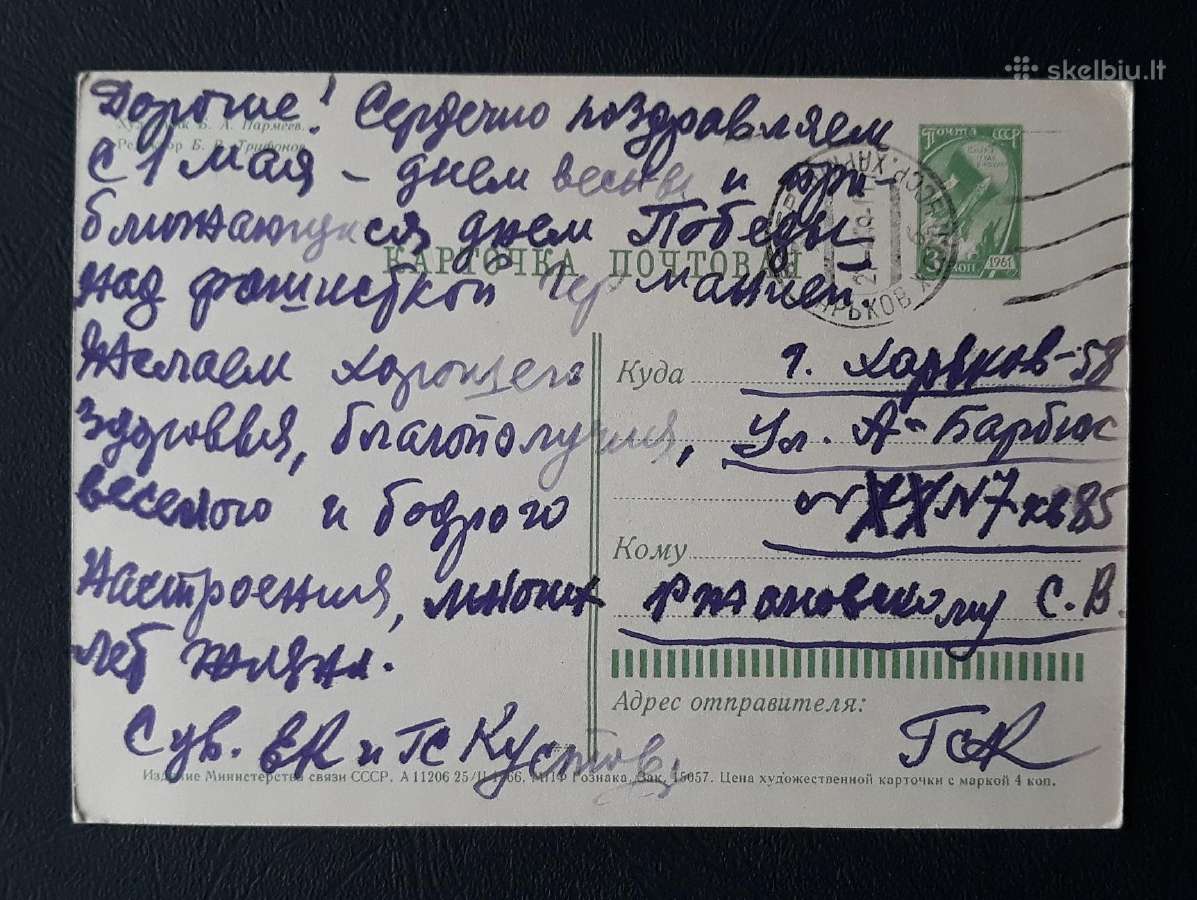 skelbiu.lt
Дорогие! Сердечно поздравляем
Художник Б. А. Пармеев.
Редактор Б. В. Трифонов
с 1 мая – днем весны и при-
ближающимся днем Победы
КАРТОЧКА ПОЧТОВАЯ
над фашисткой Германией.
Желаем хорошего
здоровья, благополучия,
веселого и бодрого
настроения, многих
лет жизни.
С ув. ВК и ГС Кустов
Почта СССР
1961
3 коп
ХАРЬКОВ
Куда г. Харьков-58
Ул. А-Барбюс
N7 кв 85
Кому
Ржановскому С. В.
Адрес отправителя:
ГСК
Издание Министерства связи СССР. А 11206 25/II 1966. МПФ Гознака. Зак. 15057. Цена художественной карточки с маркой 4 коп.